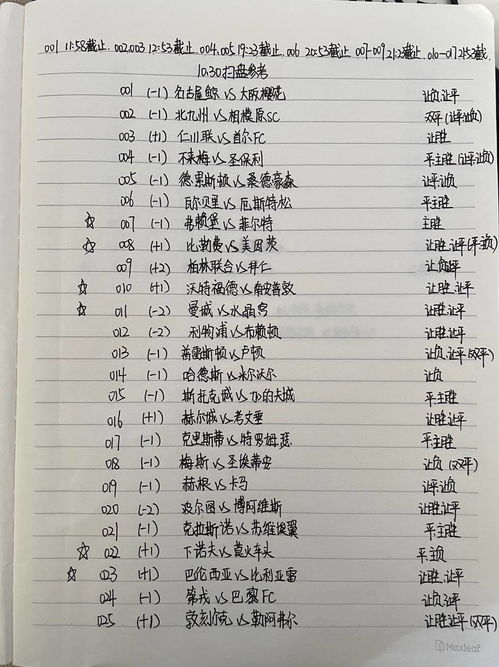 001 11:58截止. 002.003 12:53截止. 004.005 19:23截止. 006 20:53截止 007-009 21:23截止. 010-017 21:53截止
10.30 扫盘参考
001 (-1) 名古屋鲸 VS 大阪樱花 让负让平
002 (-1) 北九州 VS 相模原SC 双平(让平让负)
003 (+1) 仁川联 VS 首尔FC 让胜
004 (-1) 不来梅 VS 圣保利 平主胜(让平让负)
005 (-1) 德累斯顿 VS 桑德豪森 让平让负
006 (-1) 瓦尔贝里 VS 厄斯特松 平主胜
☆ 007 (-1) 弗赖堡 VS 菲尔特 主胜
☆ 008 (+1) 比勒费 VS 美因茨 让胜.让平(平主负)
009 (+2) 柏林联合 VS 拜仁 让负让平
☆ 010 (+1) 沃特福德 VS 南安普敦 让胜.让平
☆ 011 (-2) 曼城 VS 水晶宫 让胜让平
012 (-2) 利物浦 VS 布赖顿 让胜让平
013 (-1) 普雷斯顿 VS 卢顿 让负.让平(双平)
014 (-1) 哈德斯 VS 米尔沃尔 让负
015 (-1) 斯托克城 VS 加的夫城 平主胜
016 (+1) 赫尔城 VS 考文垂 让胜让平
017 (-1) 克里斯蒂 VS 特罗姆瑟 平主胜
018 (-1) 梅斯 VS 圣埃蒂安 让负(双平)
019 (-1) 赫根 VS 卡马 让平让负
020 (-2) 波尔图 VS 博阿维斯 让胜让平
021 (-1) 克拉斯诺 VS 苏维埃翼 平主胜
☆ 022 (+1) 下诺夫 VS 莫火车头 平主负
☆ 023 (+1) 巴伦西亚 VS 比利亚雷 让胜.让平
024 (-1) 第戎 VS 巴黎FC 让负让平
025 (+1) 敦刻尔克 VS 勒阿弗尔 让胜让平(双平)
Maxleaf